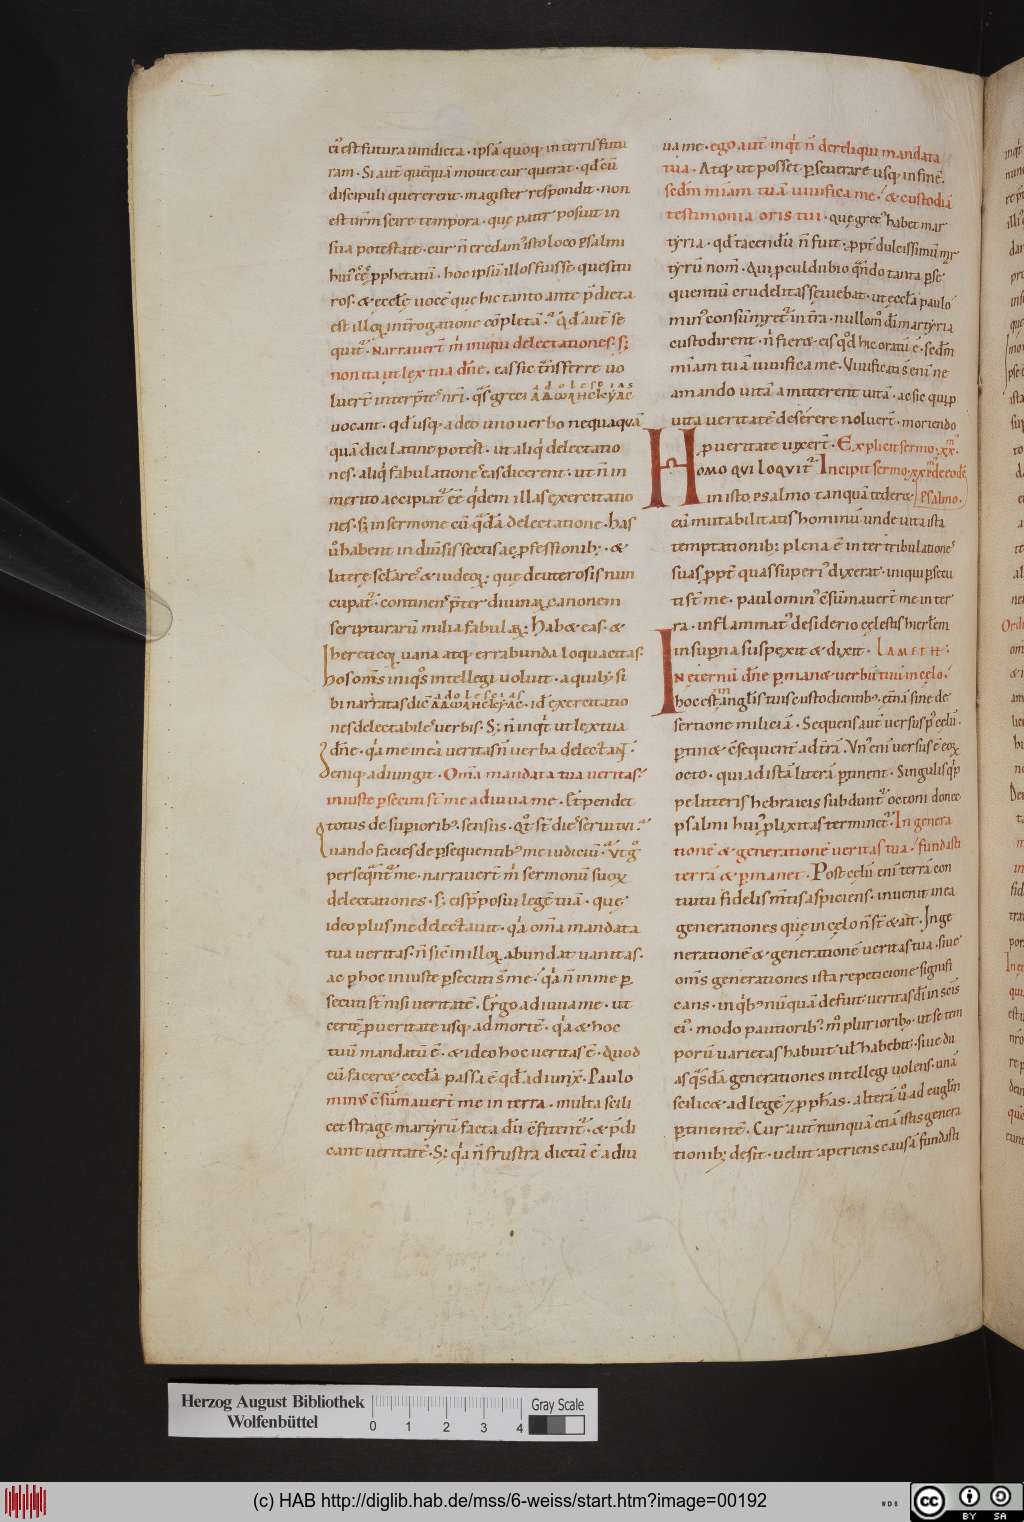 ei᾽ est futura uindicta · ipsā quoq; in terris futu
ram · Si aut̄ quēquā mouet cur querat · qd̄ cū
discipuli quererent · magister respondit · non
est ur̄m scire tempora · que pater posuit in
sua potestate · cur n̄ credam᾽ isto loco psalmi
hui᾽ prophetatū · hoc ipsū illos fuisse quesitu
ros · & eccłę uocē que hic tanto ante p̄dicta
est illoꝝ interrogatione cōpletā · Qd̄ aut̄ se
quit᾽ · Narrauer̄t m̄ iniqui delectationes · s;
non ita ut lex tua dn̄e · eas sic trāsferre uo
luer̄t interp̄tes nr̄i · qs̄ greci ΑΔΩΛΗСΚΥΑС
adolescias
uocant · qd̄ usq; adeo uno uerbo nequaquā
quā dici latine potest · ut aliq delectatio
nes · aliq fabulationes eas dicerent · ut n̄ in
merito accipiat᾽ ēē qd̄em illas exercitatio
nes · s; in sermone cū qdā delectatione · Has
ū habent in diuersis sectis ac professionib; · &
litterę sęculares & iudeoꝝ; que deuterosis nun
cupat᾽ · continens p̄ter diuinaꝝ canonem
scripturarū milia fabulaꝝ; Hab& eas · &
hereticoꝝ uana atq; errabunda loquacitas ·
hos om̄s iniqs intellegi uoluit · a quib; si
bi narratas dic̄ ΑΔΩΛΗСΚΥΑС · id ē exercitatio
adolescias
nes delectabiles uerbis · S; n̄ inqt ut lex tua
dn̄e · qa me in ea ueritas n̄ uerba delectant ·
Deniq; adiungit · Om̄a mandata tua ueritas ·
iniuste psecuti st̄ me adiuua me · Et pendet
totus de superiorib; sensus · Qt st̄ dies serui tui ·
Quando facies de persequentib; me iudiciū · Vt
persequnt᾽ me · narrauer̄t m̄ sermonū suoꝝ
delectationes · s; eis p̄posui legē tuā · que
ideo plus me delectauit · qa om̄a mandata
tua ueritas · n̄ sic in illoꝝ abundat uanitas ·
ac p hoc iniuste p̄secuti s̄t me · qa n̄ in me p
secuti st̄ nisi ueritatē · Ergo adiuua me · ut
certē p ueritate usq; ad mortē · qa & hoc
tuū mandatū ē · & ideo hoc ueritas ē · Quod
cū facer& eccłā passa ē qd̄ adiunx̄ · Paulo
min᾽ c̄sūmauer̄t me in terra · multa scili
cet strage martyrū facta dū c̄fitent᾽ · & p̄di
cant ueritatē · S; qa n̄ frustra dictū ē adiu
ua me · ego aut̄ inqt n̄ dereliqui mandata
tua · Atq; ut posset pseuerare usq; in finē ·
sedm̄ miam tuā uiuifica me · & custodiā
testimonia oris tui · que grec᾽ habet mar
tyria · qd̄ tacendū n̄ fuit · ppt dulcissimū mr̄
tyrū nom̄ · Qui p culdubio qn̄do tanta pse
quentiū crudelitas sęuiebat · ut eccła paulo
min᾽ consūmaret᾽ in tr̄a · nullom᾽ dī martyria
custodirent · n̄ fier& · eis qd hic oratū ē · sedm̄
miam tuā uiuifica me · Viuificati s̄ enī ne
amando uitā amitterent uitā · ac sic qui p
uita ueritatē deserere noluer̄t · moriendo
p ueritate uixer̄t · Explicit sermo · xx ·
Homo qui loquit᾽ Incipit sermo · xxi · de eodē
in isto psalmo tanquā teder& psalmo ·
eū mutabilitatis hominū unde uita ista
temptationib; plena ē inter tribulationes
suas ppt̄ quas superi᾽ dixerat · iniqui psecu
ti st̄ me · paulo min᾽ c̄sūmauert me in ter
ra · inflammat᾽ desiderio cęlestis hierłem
in supna suspexit & dixit · Lameth ·
In eternū dn̄e pman& uerbū tuū in cęlo ·
hoc est in angłis tuis custodientib; et̄nā sine de
sertione miliciā · Sequens aut̄ uersus p᾽ cęlū ·
ptin& c̄sequent᾽ ad tr̄ā · Vn᾽ enī uersus ē eoꝝ
octo · qui ad istā literā ptinent · Singulis qp
pe litteris hebraicis subdunt᾽ octoni donec
psalmi hui᾽ plixitas terminet᾽ · In genera
tionē & generationē ueritas tua · fundasti
terrā & pmanet · Post cęlū enī terrā con
tuitu fidelis mentis aspiciens · inuenit in ea
generationes que in cęlo n̄ st̄ & ait · In ge
nerationē & generationē ueritas tua · siue
om̄s generationes ista repeticione signifi
cans · in qb; nūquā defuit ueritas dī in scīs
ei᾽ · modo pautiorib; m᾽ plurioribꝰ · ut se tem
porū uarietas habuit ut habebit; siue du
as qsdā generationes intellegi uolens · unā
scilic& ad legē 7 pphas · alterā ū ad euglm̄
ptinentē · Cur aut̄ nunquā etiā istis genera
tionib; desit · uelut aperiens causā fundasti
Herzog August Bibliothek
Wolfenbüttel
0 1 2 3 4
Gray Scale
(c) HAB http://diglib.hab.de/mss/6-weiss/start.htm?image=00192
WDB
cc
BY SA